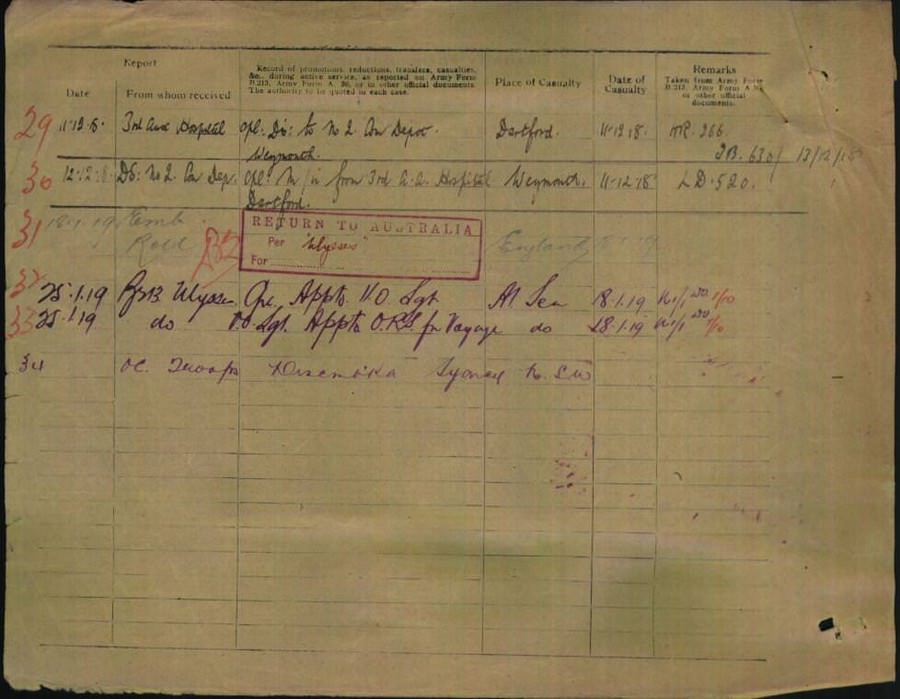 Report
Record of promotions, reductions, transfers, casualties,
&c., during active service, as reported on Army Form
B.213, Army Form A. 36, or in other official documents.
The authority to be quoted in each case.
Place of Casualty
Date of
Casualty
Remarks
Taken from Army Form
B.213, Army Form A.36
or other official
documents.
Date
From whom received
29 11.12.8. 3rd Aux Hospital Cpl: Dis: to No 2 Con Depot Dartford. 11.12.18. HR. 266
Weymouth. 13/12/18
30 12.12.18 DS: No 2 Con Dep. Cpl: M/in from 3rd A.A. Hospital Weymouth. 11.12.18 LD.520.
Dartford.
31 18.1.19 Emb. England
RETURN TO AUSTRALIA
Per "Ulysses"
For
32 25.1.19 Ulysses Appts. Sgt At Sea 18.1.19
33 25.1.19 do Sgt. Appts O.R.S. for Voyage do 18.1.19
34 OC. Troops Disembka Sydney N.S.W